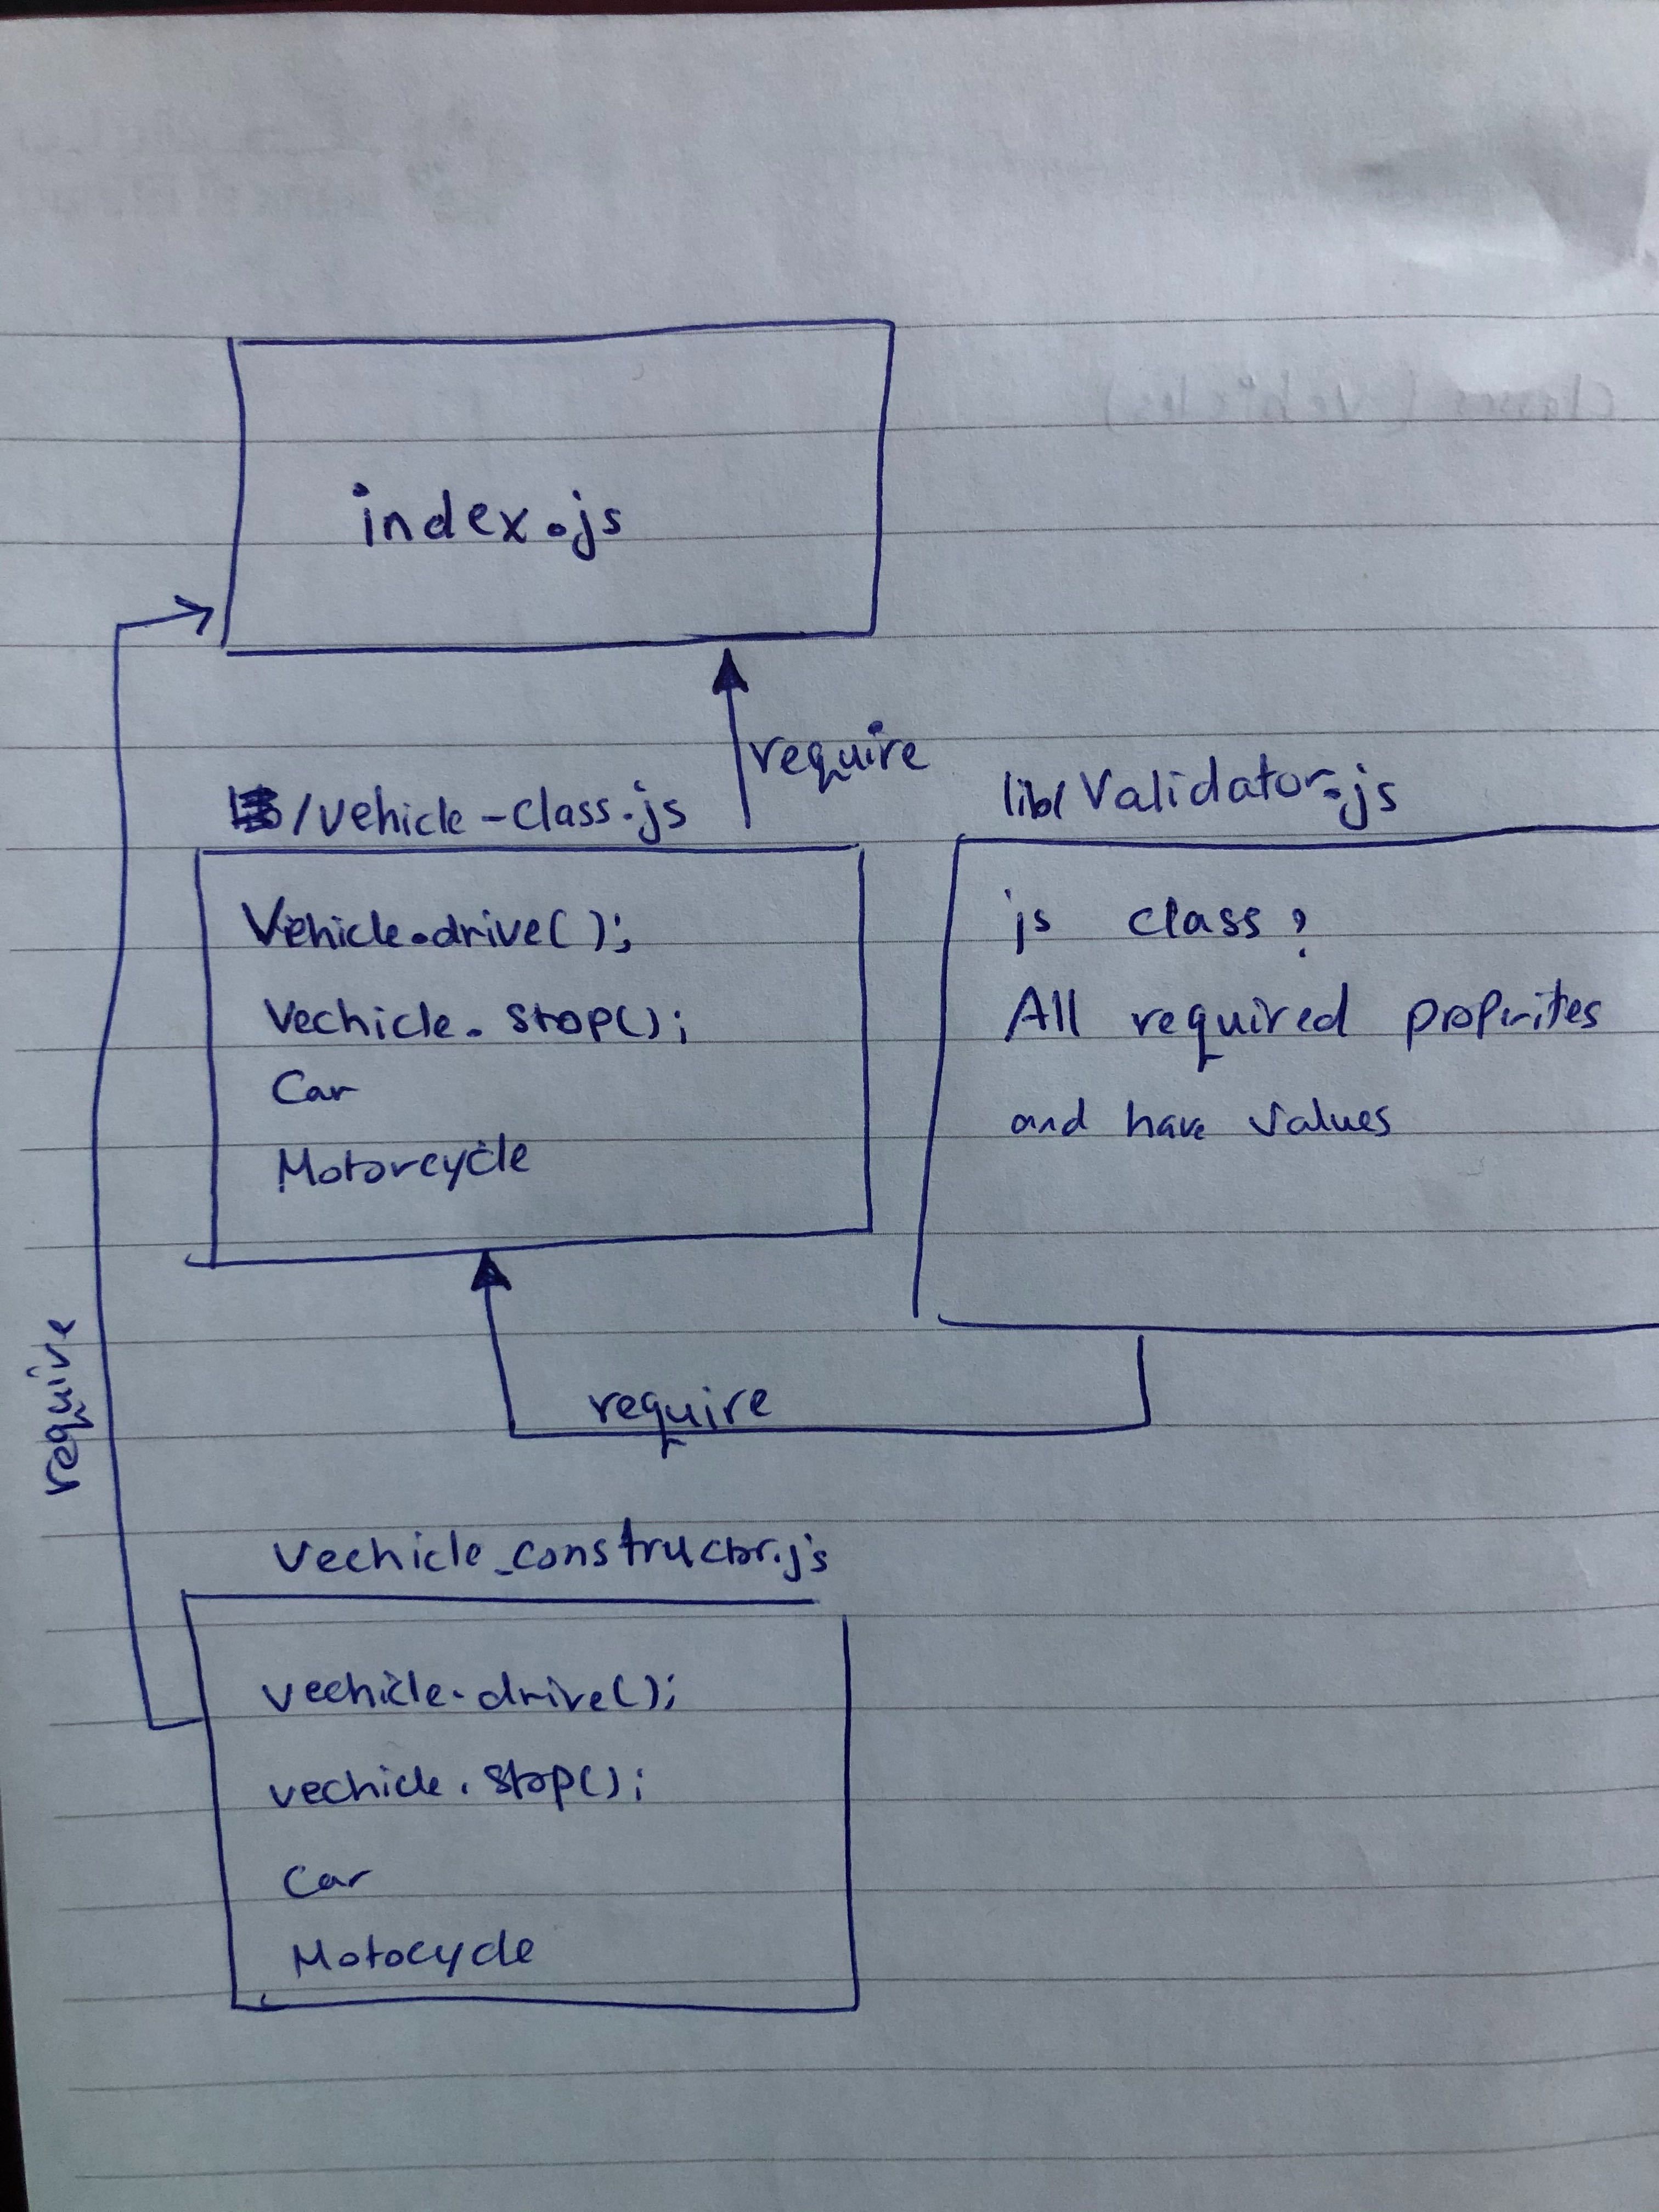 index.js
require
/vehicle-class.js
Vehicle.drive();
Vechicle.stop();
Car
Motorcycle
lib/Validator.js
js class?
All required properites
and have values
require
require
Vechicle_constructor.js
vechicle.drive();
vechicle.stop();
Car
Motocycle
Classes (Vehicles)